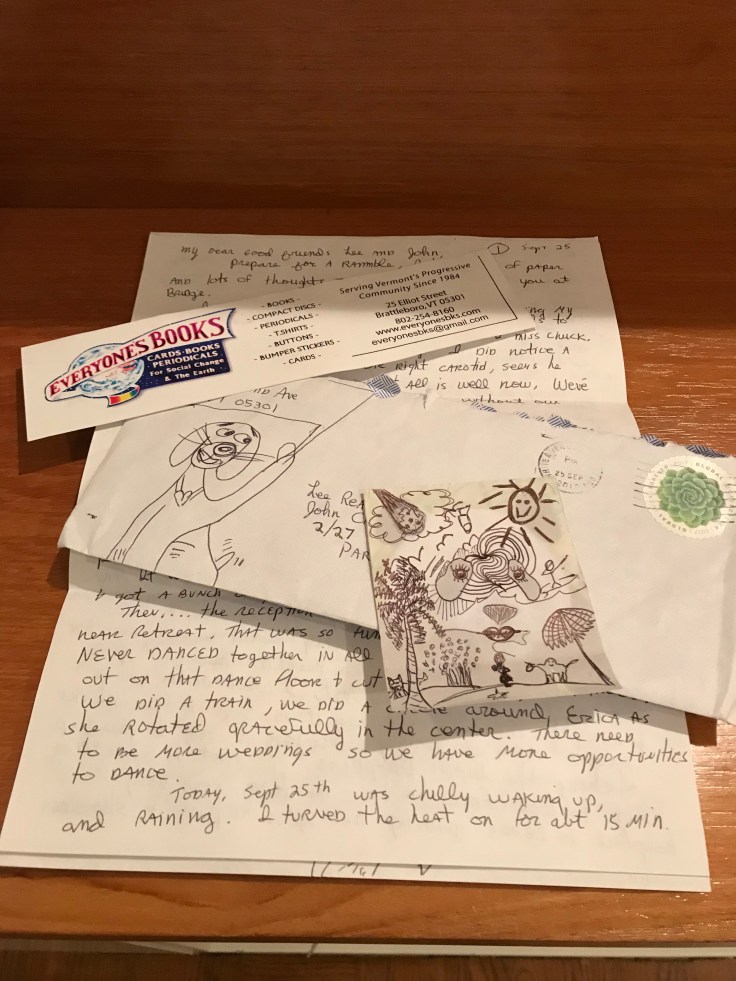 my dear good friends Lee and John,
① Sept 25
Prepare for A Ramble,
and lots of thoughts —
of paper
Bridge.
you at
my
to
miss Chuck.
I DID NOTICE A
RIGHT CAROTID, seems he
All is well now, We've
without our
EVERYONE'S BOOKS
CARDS·BOOKS
PERIODICALS
For Social Change
& The Earth
- BOOKS -
- COMPACT DISCS -
- PERIODICALS -
- T.SHIRTS -
- BUTTONS -
- BUMPER STICKERS -
- CARDS -
Serving Vermont's Progressive
Community Since 1984
25 Elliot Street
Brattleboro, VT 05301
802-254-8160
www.everyonesbks.com
everyonesbks@gmail.com
Ave
05301
PM
25 SEP
Lee
John
2/27
I got A BUNCH
Then,... the reception
near Retreat. That was so
NEVER DANCED together IN All
out on that DANCE Floor & cut
We DID A TRAIN, we DID A around, Erica as
she ROTATED gracefully in the center. There need
to be more weddings so we have more opportunities
to DANCE.
TODAY, Sept 25th was chilly waking up,
and RAINING. I turned the heat on for abt 15 min.